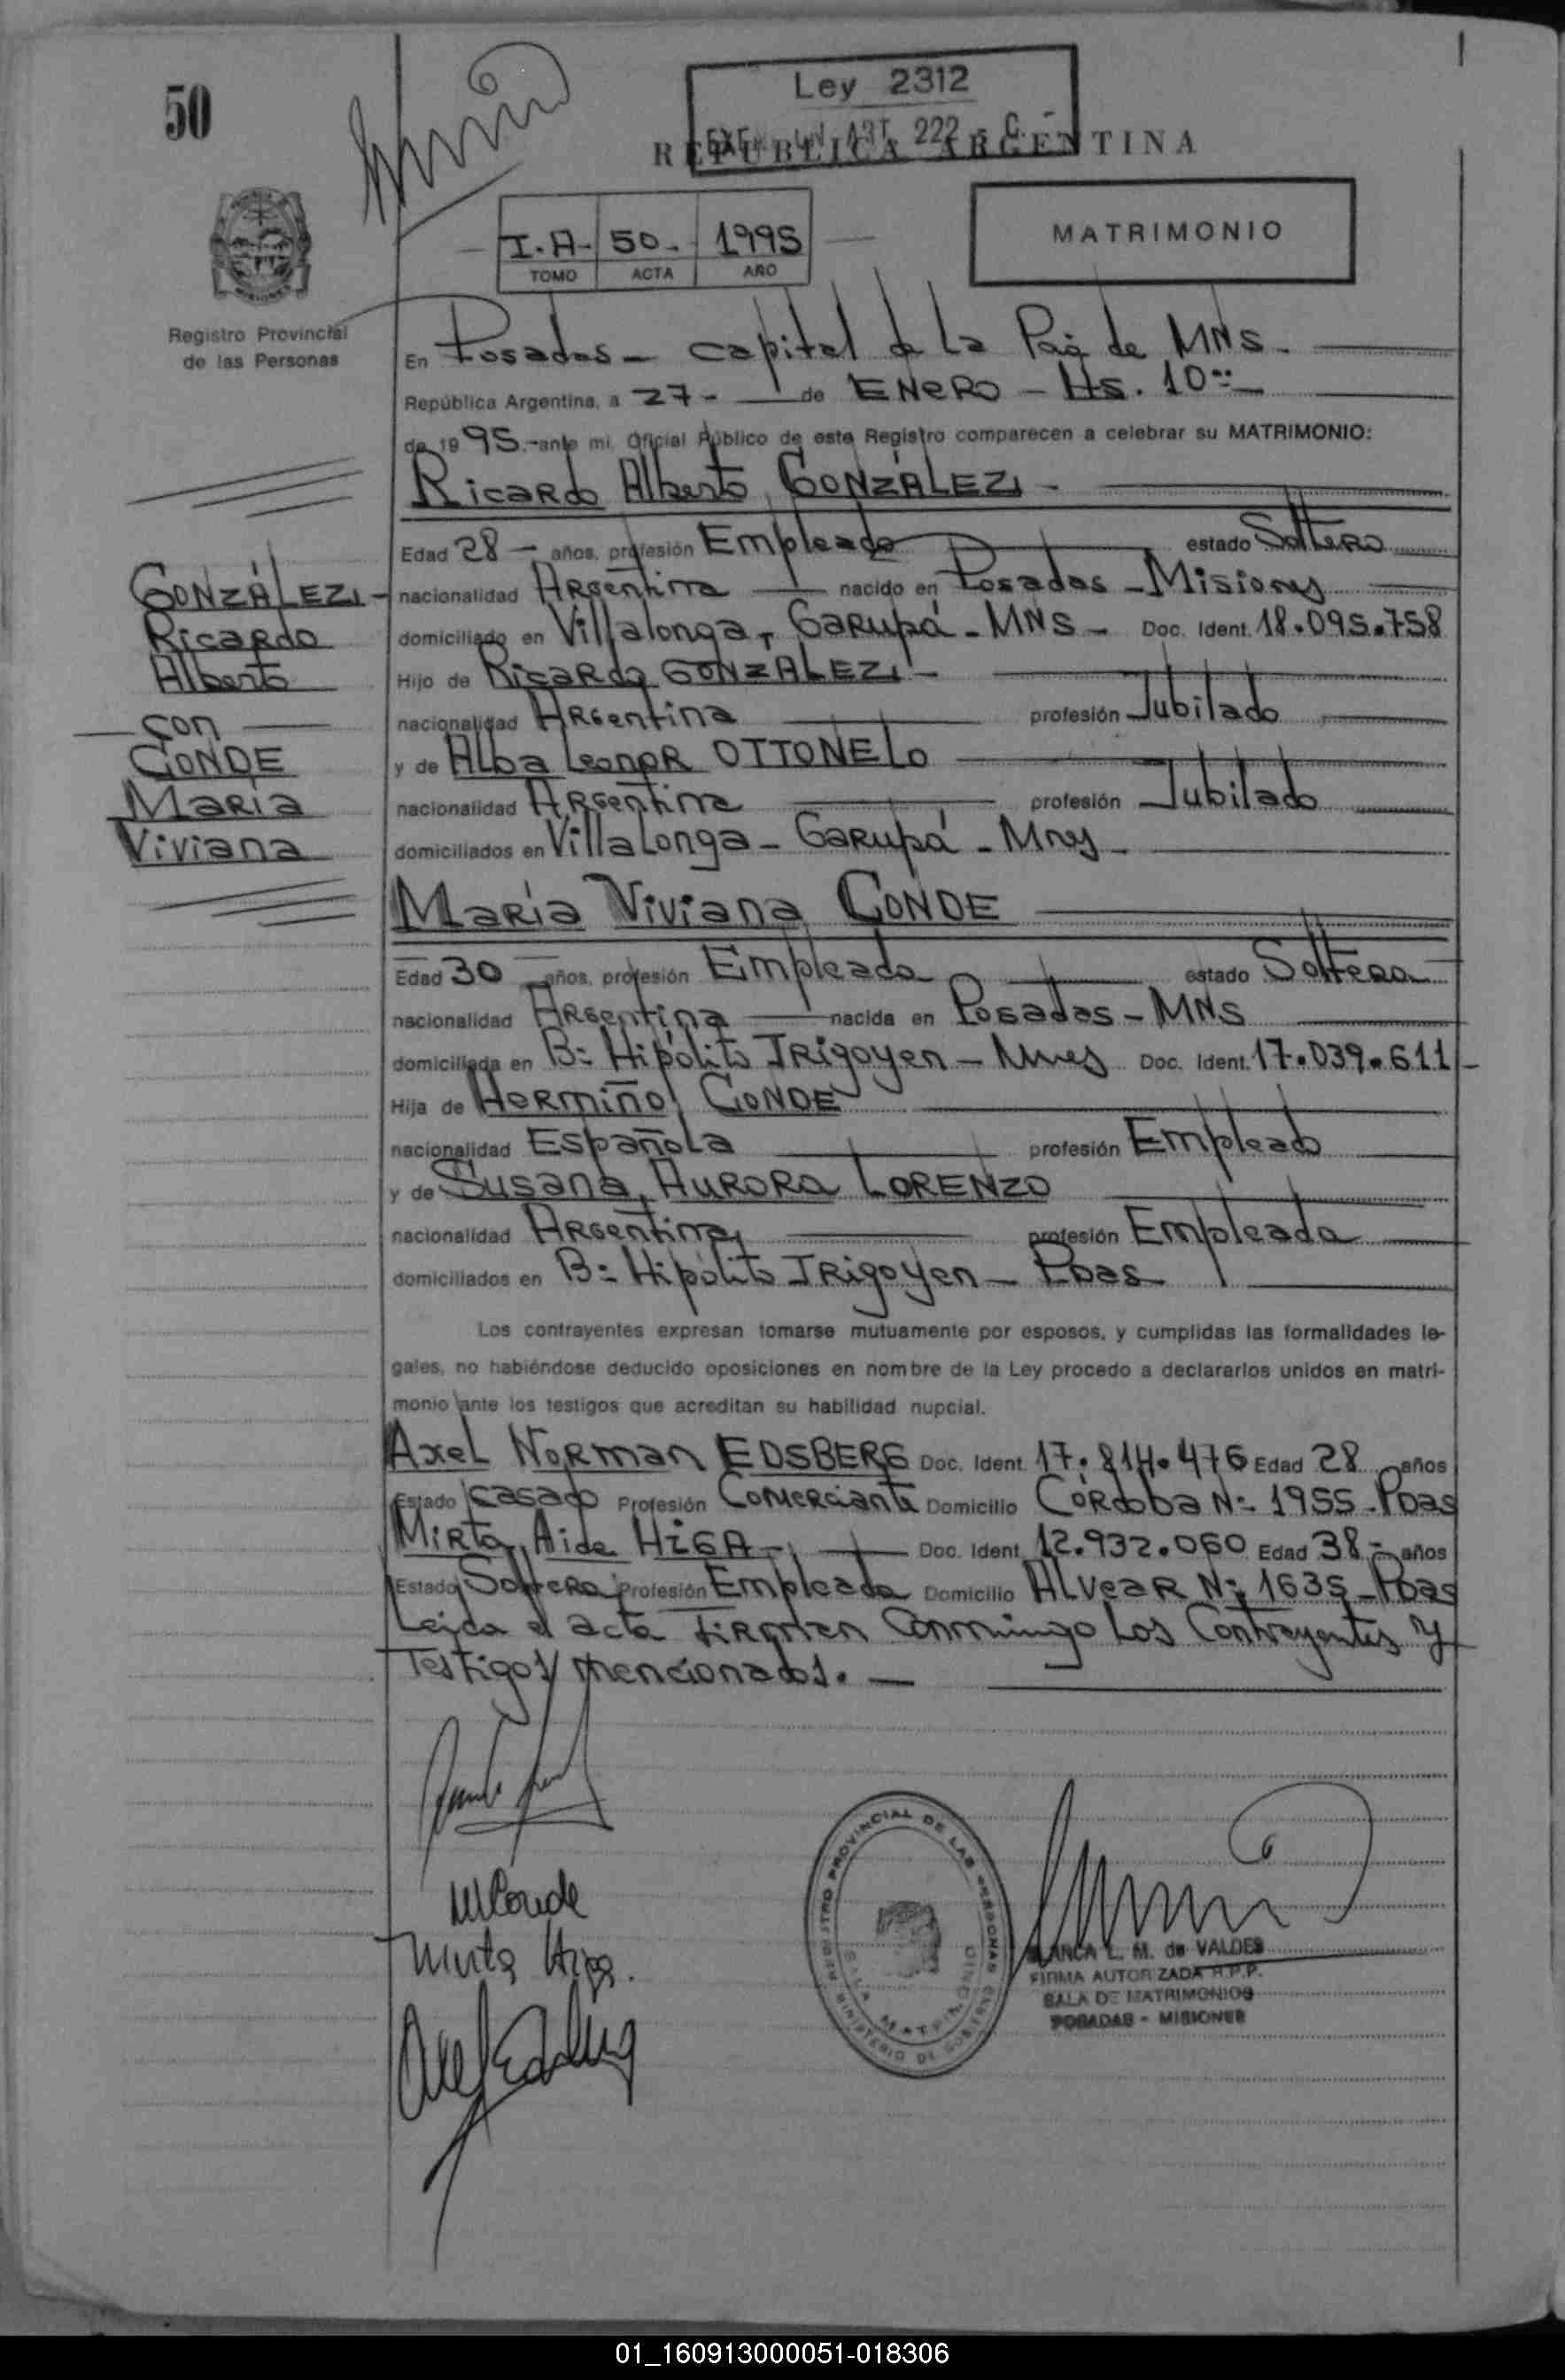 50
Ley 2312
REPUBLICA ARGENTINA
ART. 222 - C.
I.A- 50- 1995
TOMO ACTA AÑO
MATRIMONIO
Registro Provincial
de las Personas
En Posadas - capital de La de MNS -
República Argentina, a 27 - de ENERO - Hs. 10
de 1995.- ante mi, Oficial Público de este Registro comparecen a celebrar su MATRIMONIO:
Ricardo Alberto GONZALEZ
Edad 28 - años, profesión Empleado estado Soltero
nacionalidad Argentina nacido en Posadas - Misiones
domiciliado en Villalonga, Garupá - MNS - Doc. Ident. 18.095.758
Hijo de Ricardo GONZALEZ -
nacionalidad Argentina profesión Jubilado
y de Alba Leonor OTTONELO
nacionalidad Argentina profesión Jubilado
domiciliados en Villalonga - Garupá - Mnes -
GONZALEZ
Ricardo
Alberto
con
CONDE
Maria
Viviana
María Viviana CONDE
Edad 30 años, profesión Empleada estado Soltera
nacionalidad Argentina nacida en Posadas - MNS
domiciliada en B= Hipólito IRigoyen - Mnes Doc. Ident. 17.039.611 -
Hija de Hermiño CONDE
nacionalidad Española profesión Empleado
y de Susana, AURORA LORENZO
nacionalidad Argentina profesión Empleada
domiciliados en B= Hipólito IRigoyen - Pdas
Los contrayentes expresan tomarse mutuamente por esposos, y cumplidas las formalidades le-
gales, no habiéndose deducido oposiciones en nombre de la Ley procedo a declararlos unidos en matri-
monio ante los testigos que acreditan su habilidad nupcial.
Axel Norman EDSBERG Doc. Ident. 17.814.476 Edad 28 años
Estado casado Profesión Comerciante Domicilio Córdoba N= 1955 - Pdas
Mirta, Aide HIGA - Doc. Ident. 12.932.060 Edad 38 - años
Estado Soltera Profesión Empleada Domicilio Alvear N= 1635 - Pdas
Leida el acta firman Conmingo Los Contrayentes y
Testigos mencionados. -
MConde
Mirta Higa.
REGISTRO PROVINCIAL DE LAS PERSONAS
MINISTERIO DE GOBIERNO
BLANCA L. M. de VALDES
FIRMA AUTORIZADA R.P.P.
SALA DE MATRIMONIOS
POSADAS - MISIONES
01_160913000051-018306